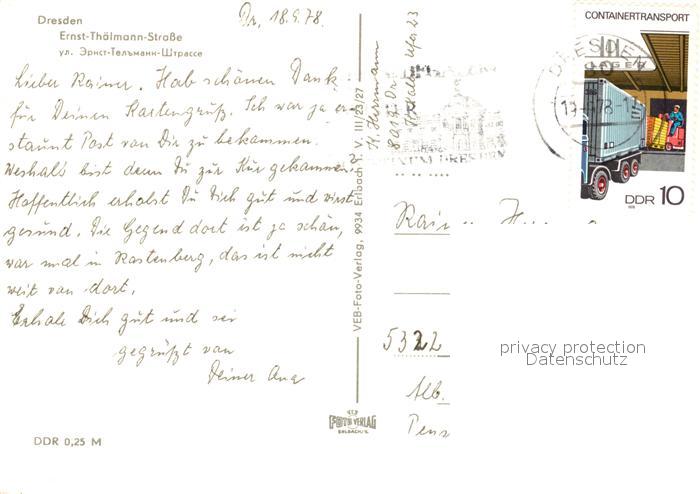 Dresden
Ernst-Thälmann-Straße
ул. Эрнст-Тельманн-Штрассе
Dr., 18.5.78.
Lieber Rainer. Hab schönen Dank
für Deinen Kartengruß. Ich war ja er-
staunt Post von Dir zu bekommen.
Weshalb bist denn Du zur Kur gekommen.
Hoffentlich erholst Du Dich gut und wirst
gesund. Die Gegend dort ist ja schön,
war mal in Rastenberg, das ist nicht
weit von dort.
Erhole Dich gut und sei
gegrüßt von
Deiner
DDR 0,25 M
VEB-Foto-Verlag, 9934 Erlbach i. V. III/23/27
H. Herrmann
8019 Dr.
FOTO VERLAG
ERLBACH
CONTAINERTRANSPORT
LAGER
DDR 10
DRESDEN
5322
Alb.
privacy protection
Datenschutz